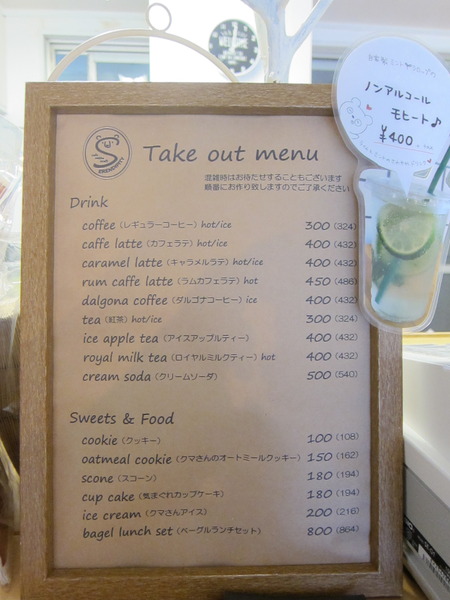 Take out menu
混雑時はお待たせすることもございます
順番にお作り致しますのでご了承ください
Drink
coffee (レギュラーコーヒー) hot/ice 300 (324)
caffe latte (カフェラテ) hot/ice 400 (432)
caramel latte (キャラメルラテ) hot/ice 400 (432)
rum caffe latte (ラムカフェラテ) hot 450 (486)
dalgona coffee (ダルゴナコーヒー) ice 400 (432)
tea (紅茶) hot/ice 300 (324)
ice apple tea (アイスアップルティー) 400 (432)
royal milk tea (ロイヤルミルクティー) hot 400 (432)
cream soda (クリームソーダ) 500 (540)
Sweets & Food
cookie (クッキー) 100 (108)
oatmeal cookie (クマさんのオートミールクッキー) 150 (162)
scone (スコーン) 180 (194)
cup cake (気まぐれカップケーキ) 180 (194)
ice cream (クマさんアイス) 200 (216)
bagel lunch set (ベーグルランチセット) 800 (864)
ノンアルコール
モヒート♪
¥400